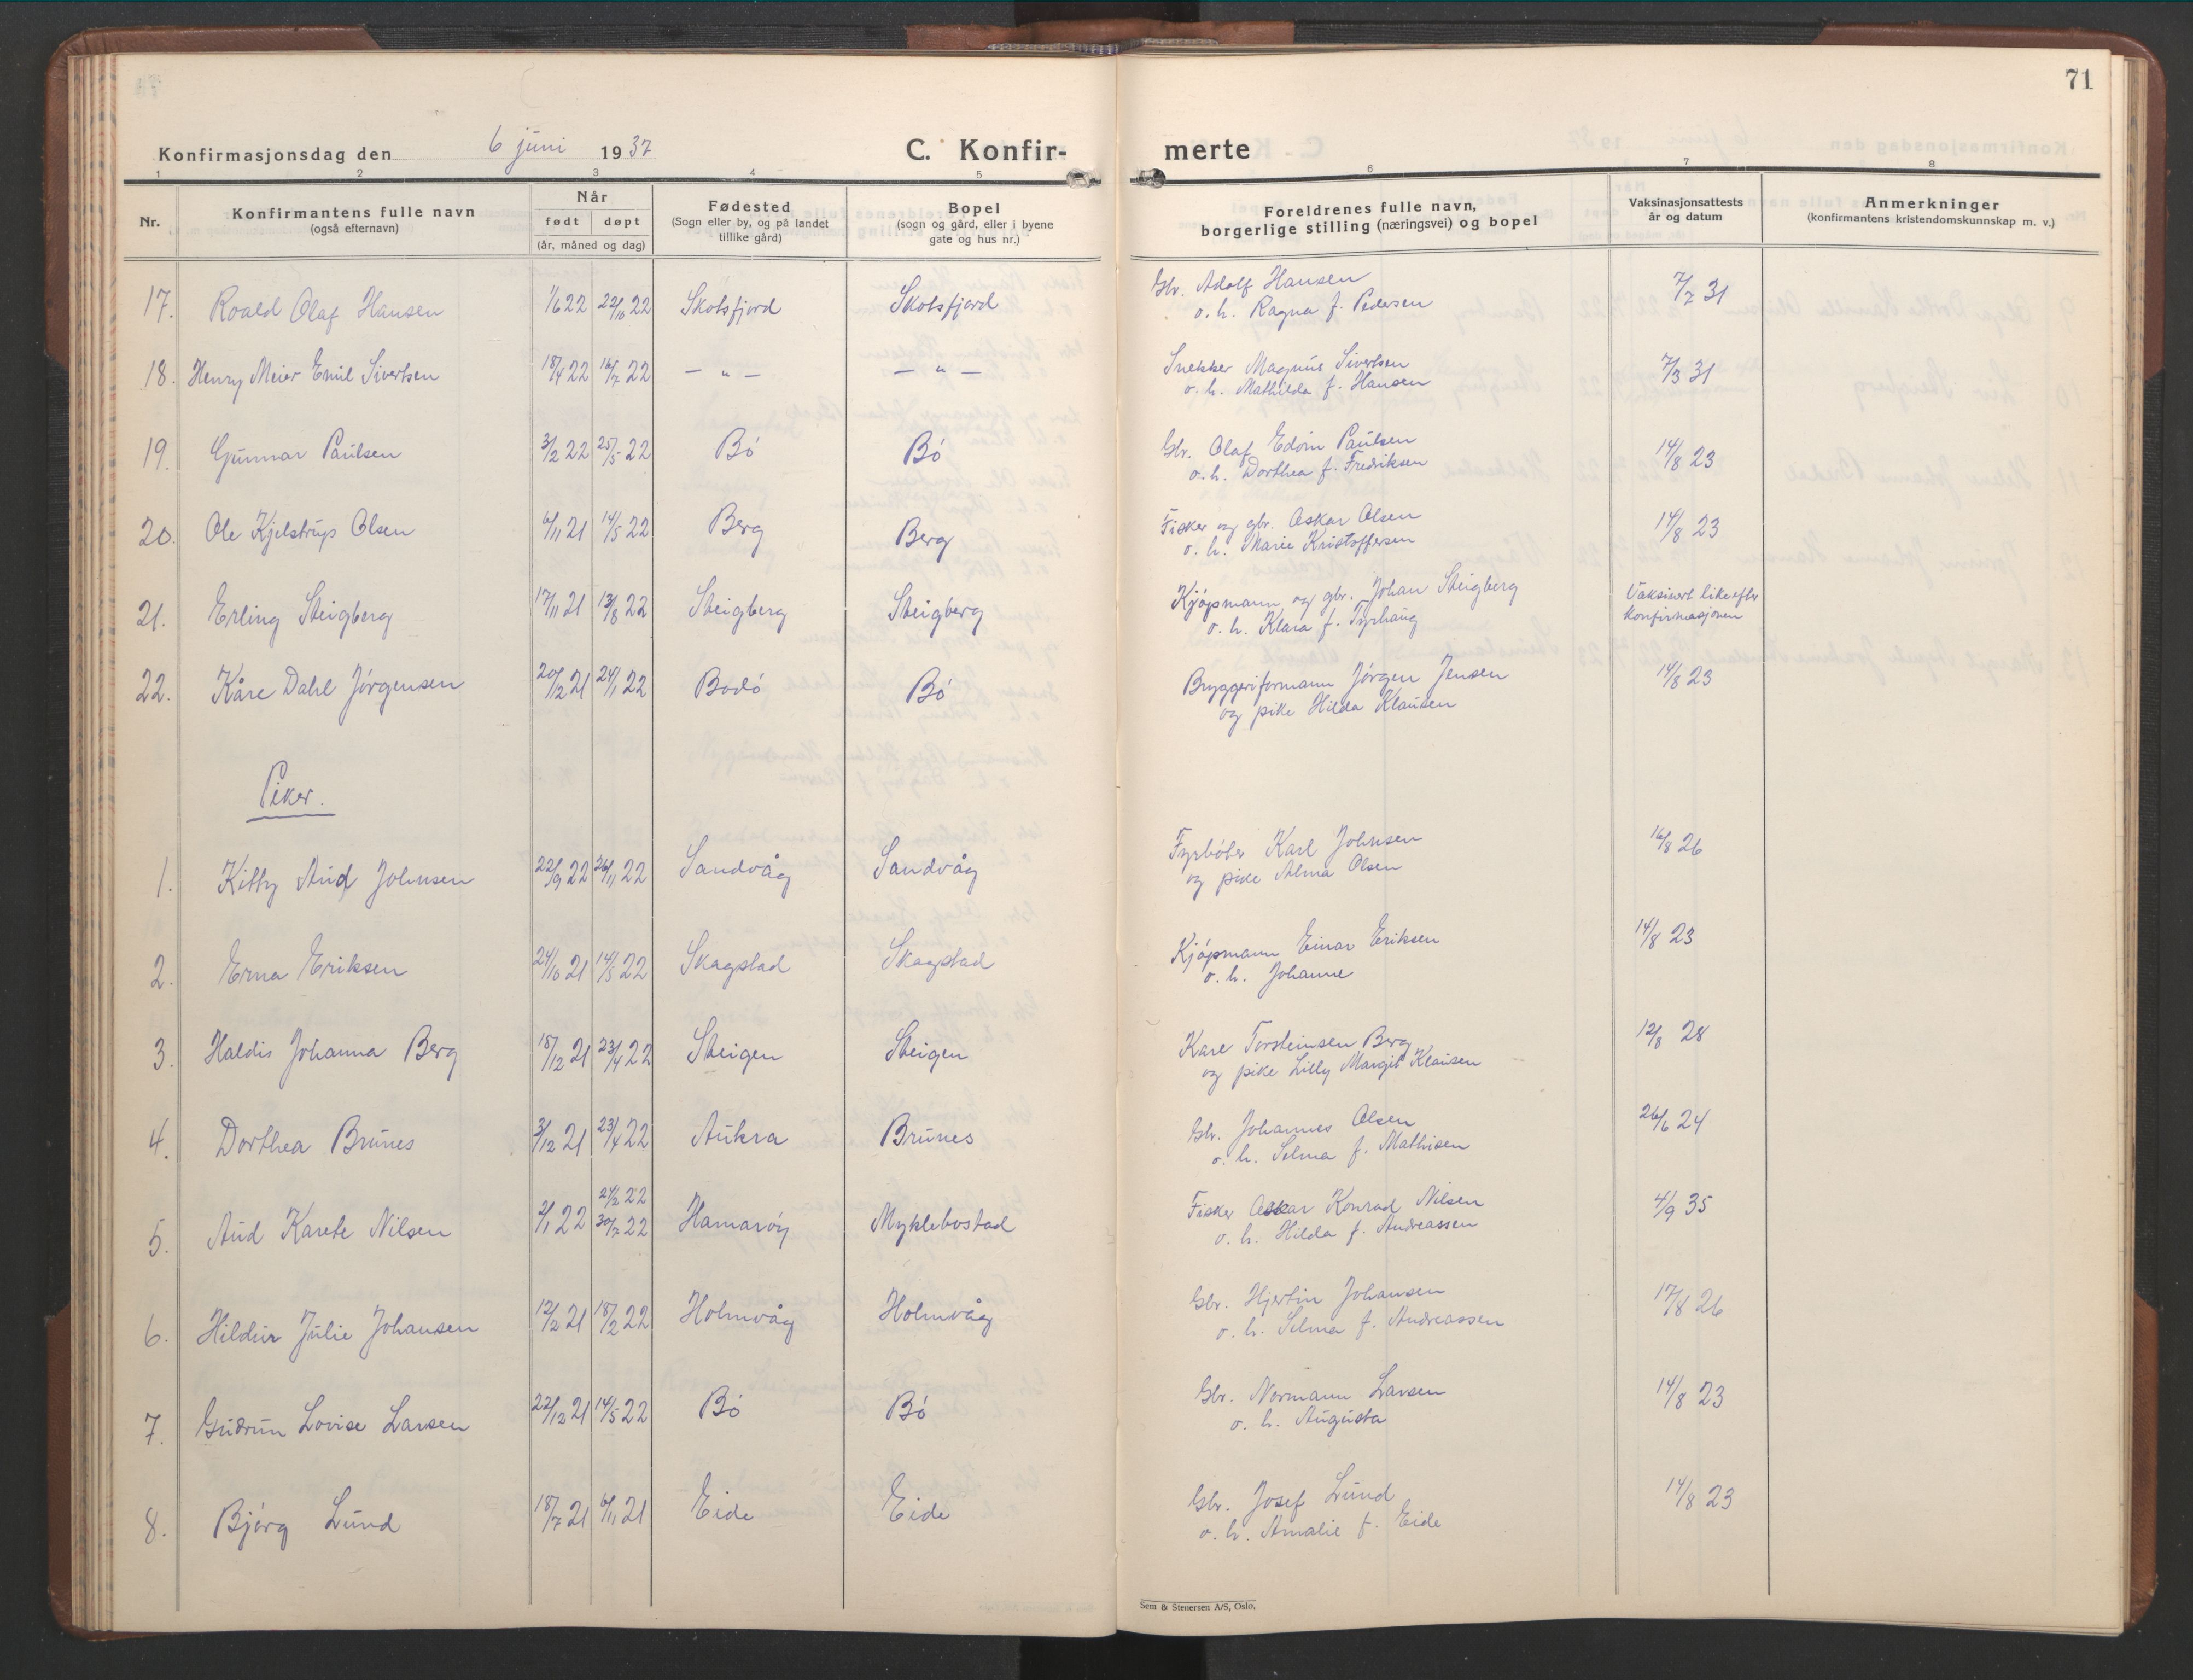 71
Konfirmasjonsdag den 6 juni 1937
C. Konfir-
merte
1 2 3 4 5 6 7 8
Nr.
Konfirmantens fulle navn
(også efternavn)
Når
født døpt
(år, måned og dag)
Fødested
(Sogn eller by, og på landet
tillike gård)
Bopel
(sogn og gård, eller i byene
gate og hus nr.)
Foreldrenes fulle navn,
borgerlige stilling (næringsvei) og bopel
Vaksinasjonsattests
år og datum
Anmerkninger
(konfirmantens kristendomskunnskap m. v.)
17. Roald Olaf Hansen 1/6 22 22/10 22 Skotsfjord Skotsfjord Gbr. Adolf Hansen 7/7 31
o. h. Ragna f. Pedersen
18. Henry Meier Emil Sivertsen 18/4 22 16/7 22 — " — — " — Snekker Magnus Sivertsen 7/3 31
o. h. Mathilda f. Hansen
19. Gunnar Paulsen 3/2 22 25/5 22 Bø Bø Gbr. Olaf Edvin Paulsen 14/8 23
o. h. Dorthea f. Fredriksen
20. Ole Kjelstrup Olsen 6/11 21 14/5 22 Berg Berg Fisker og gbr. Oskar Olsen 14/8 23
o. h. Marie Kristoffersen
21. Erling Steigberg 17/11 21 13/8 22 Steigberg Steigberg Kjøpmann og gbr. Johan Steigberg Vaksinert like efter
o. h. Klara f. Tyrhaug konfirmasjonen
22. Kåre Dahl Jørgensen 20/12 21 24/1 22 Bodø Bø Bryggeriformann Jørgen Jensen 14/8 23
og pike Hilda Klausen
Piker.
1. Kitty Aud Johnsen 22/9 22 26/11 22 Sandvåg Sandvåg Fyrbøter Karl Johnsen 16/8 26
og pike Alma Olsen
2. Erna Eriksen 24/10 21 14/5 22 Skagstad Skagstad Kjøpmann Einar Eriksen 14/8 23
o. h. Johanne
3. Haldis Johanna Berg 18/12 21 23/4 22 Steigen Steigen Kare Torsteinsen Berg 12/8 28
og pike Lilly Margit Klausen
4. Dorthea Brunes 3/12 21 23/4 22 Aukra Brunes Gbr. Johannes Olsen 26/6 24
o. h. Selma f. Mathisen
24/2 22
5. Aud Karete Nilsen 2/1 22 30/7 22 Hamarøy Myklebostad Fisker Oskar Konrad Nilsen 4/9 35
o. h. Hilda f. Andreassen
6. Hildur Julie Johansen 12/2 21 18/2 22 Holmvåg Holmvåg Gbr. Hjertin Johansen 17/8 26
o. h. Selma f. Andreassen
7. Gudrun Lovise Larsen 22/12 21 14/5 22 Bø Bø Gbr. Normann Larsen 14/8 23
o. h. Augusta
8. Bjørg Lund 18/7 21 6/11 21 Eide Eide Gbr. Josef Lund 14/8 23
o. h. Amalie f. Eide
Sem & Stenersen A/S, Oslo.